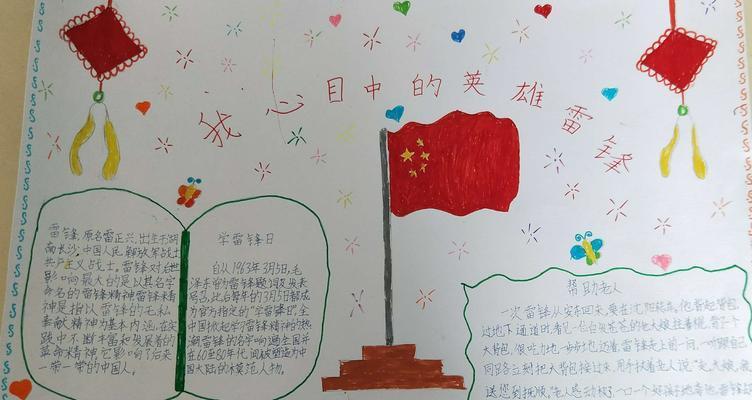 我心目中的英雄雷锋
雷锋,原名雷正兴,出生于湖
南长沙,中国人民解放军战士
共产主义战士,雷锋对后世
影响最大的是以其名字
命名的雷锋精神雷锋精
神是指以雷锋的无私
奉献精神为基本内涵,在实
践中不断丰富和发展着的
革命精神它影响了后来
一带一带的中国人。
学雷锋日
自从1963年3月5日,毛
泽东的雷锋题词发表
后,此后每年的3月5日都成
为官方指定的"学雷锋日"全
中国掀起学雷锋精神的热
潮雷锋的名字响遍全国并
在60至80年代间被塑造为中
国大陆的模范人物。
帮助老人
一次雷锋从安东回来,要在沈阳转车。他背起背包
过地下通道时看见一位白发苍苍的老大娘拄着棍,背了个
大背包,很吃力地一步步地迈着,雷锋走上前一问,
同路立刻把大背包接过来,用手扶着老人说"走,大娘,我
送您到抚顺。"老人感动极了,一口一个好孩子地夸他